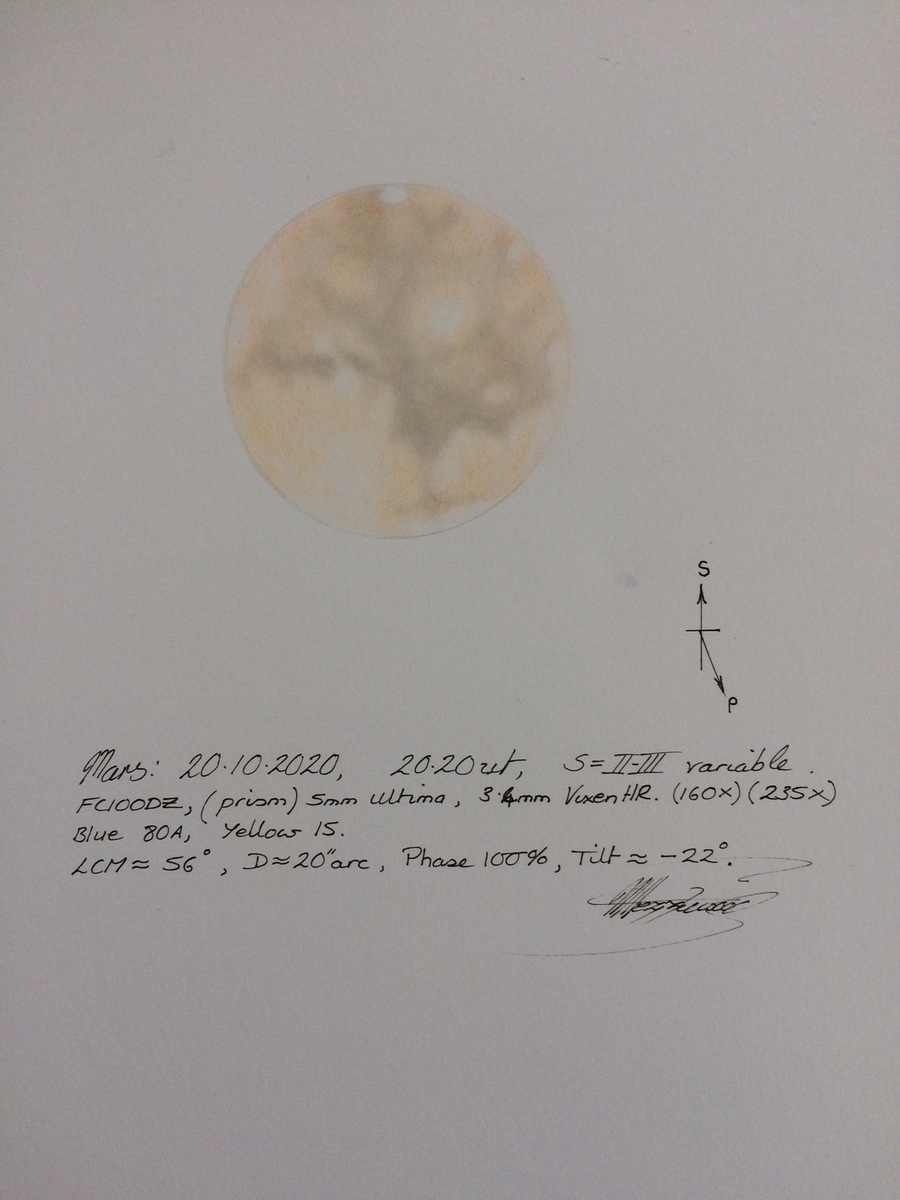 S
P
Mars: 20.10.2020, 20.20ut, S=II-III variable.
FC100DZ, (prism) 5mm Ultima, 3.4mm Vixen HR. (160x) (235x)
Blue 80A, Yellow 15.
LCM ≈ 56°, D≈20"arc, Phase 100%, Tilt ≈ -22°.